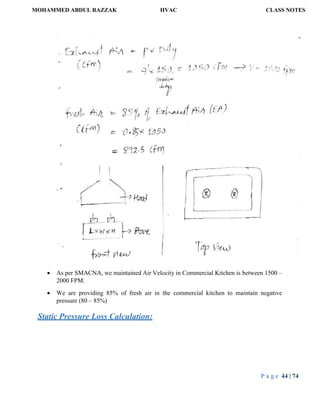 MOHAMMED ABDUL RAZZAK HVAC CLASS NOTES
Exhaust Air =
(Cfm)
= 7x150 = 1050 Cfm →
Fresh Air = 85% of Exhaust Air (EA)
(Cfm)
= 0.85x 1050
= 892.5 Cfm
→ Hood
LxWxH
front view
Top View
• As per SMACNA, we maintained Air Velocity in Commercial Kitchen is between 1500 –
2000 FPM.
• We are providing 85% of fresh air in the commercial kitchen to maintain negative
pressure (80 – 85%)
Static Pressure Loss Calculation:
Page 44 | 74